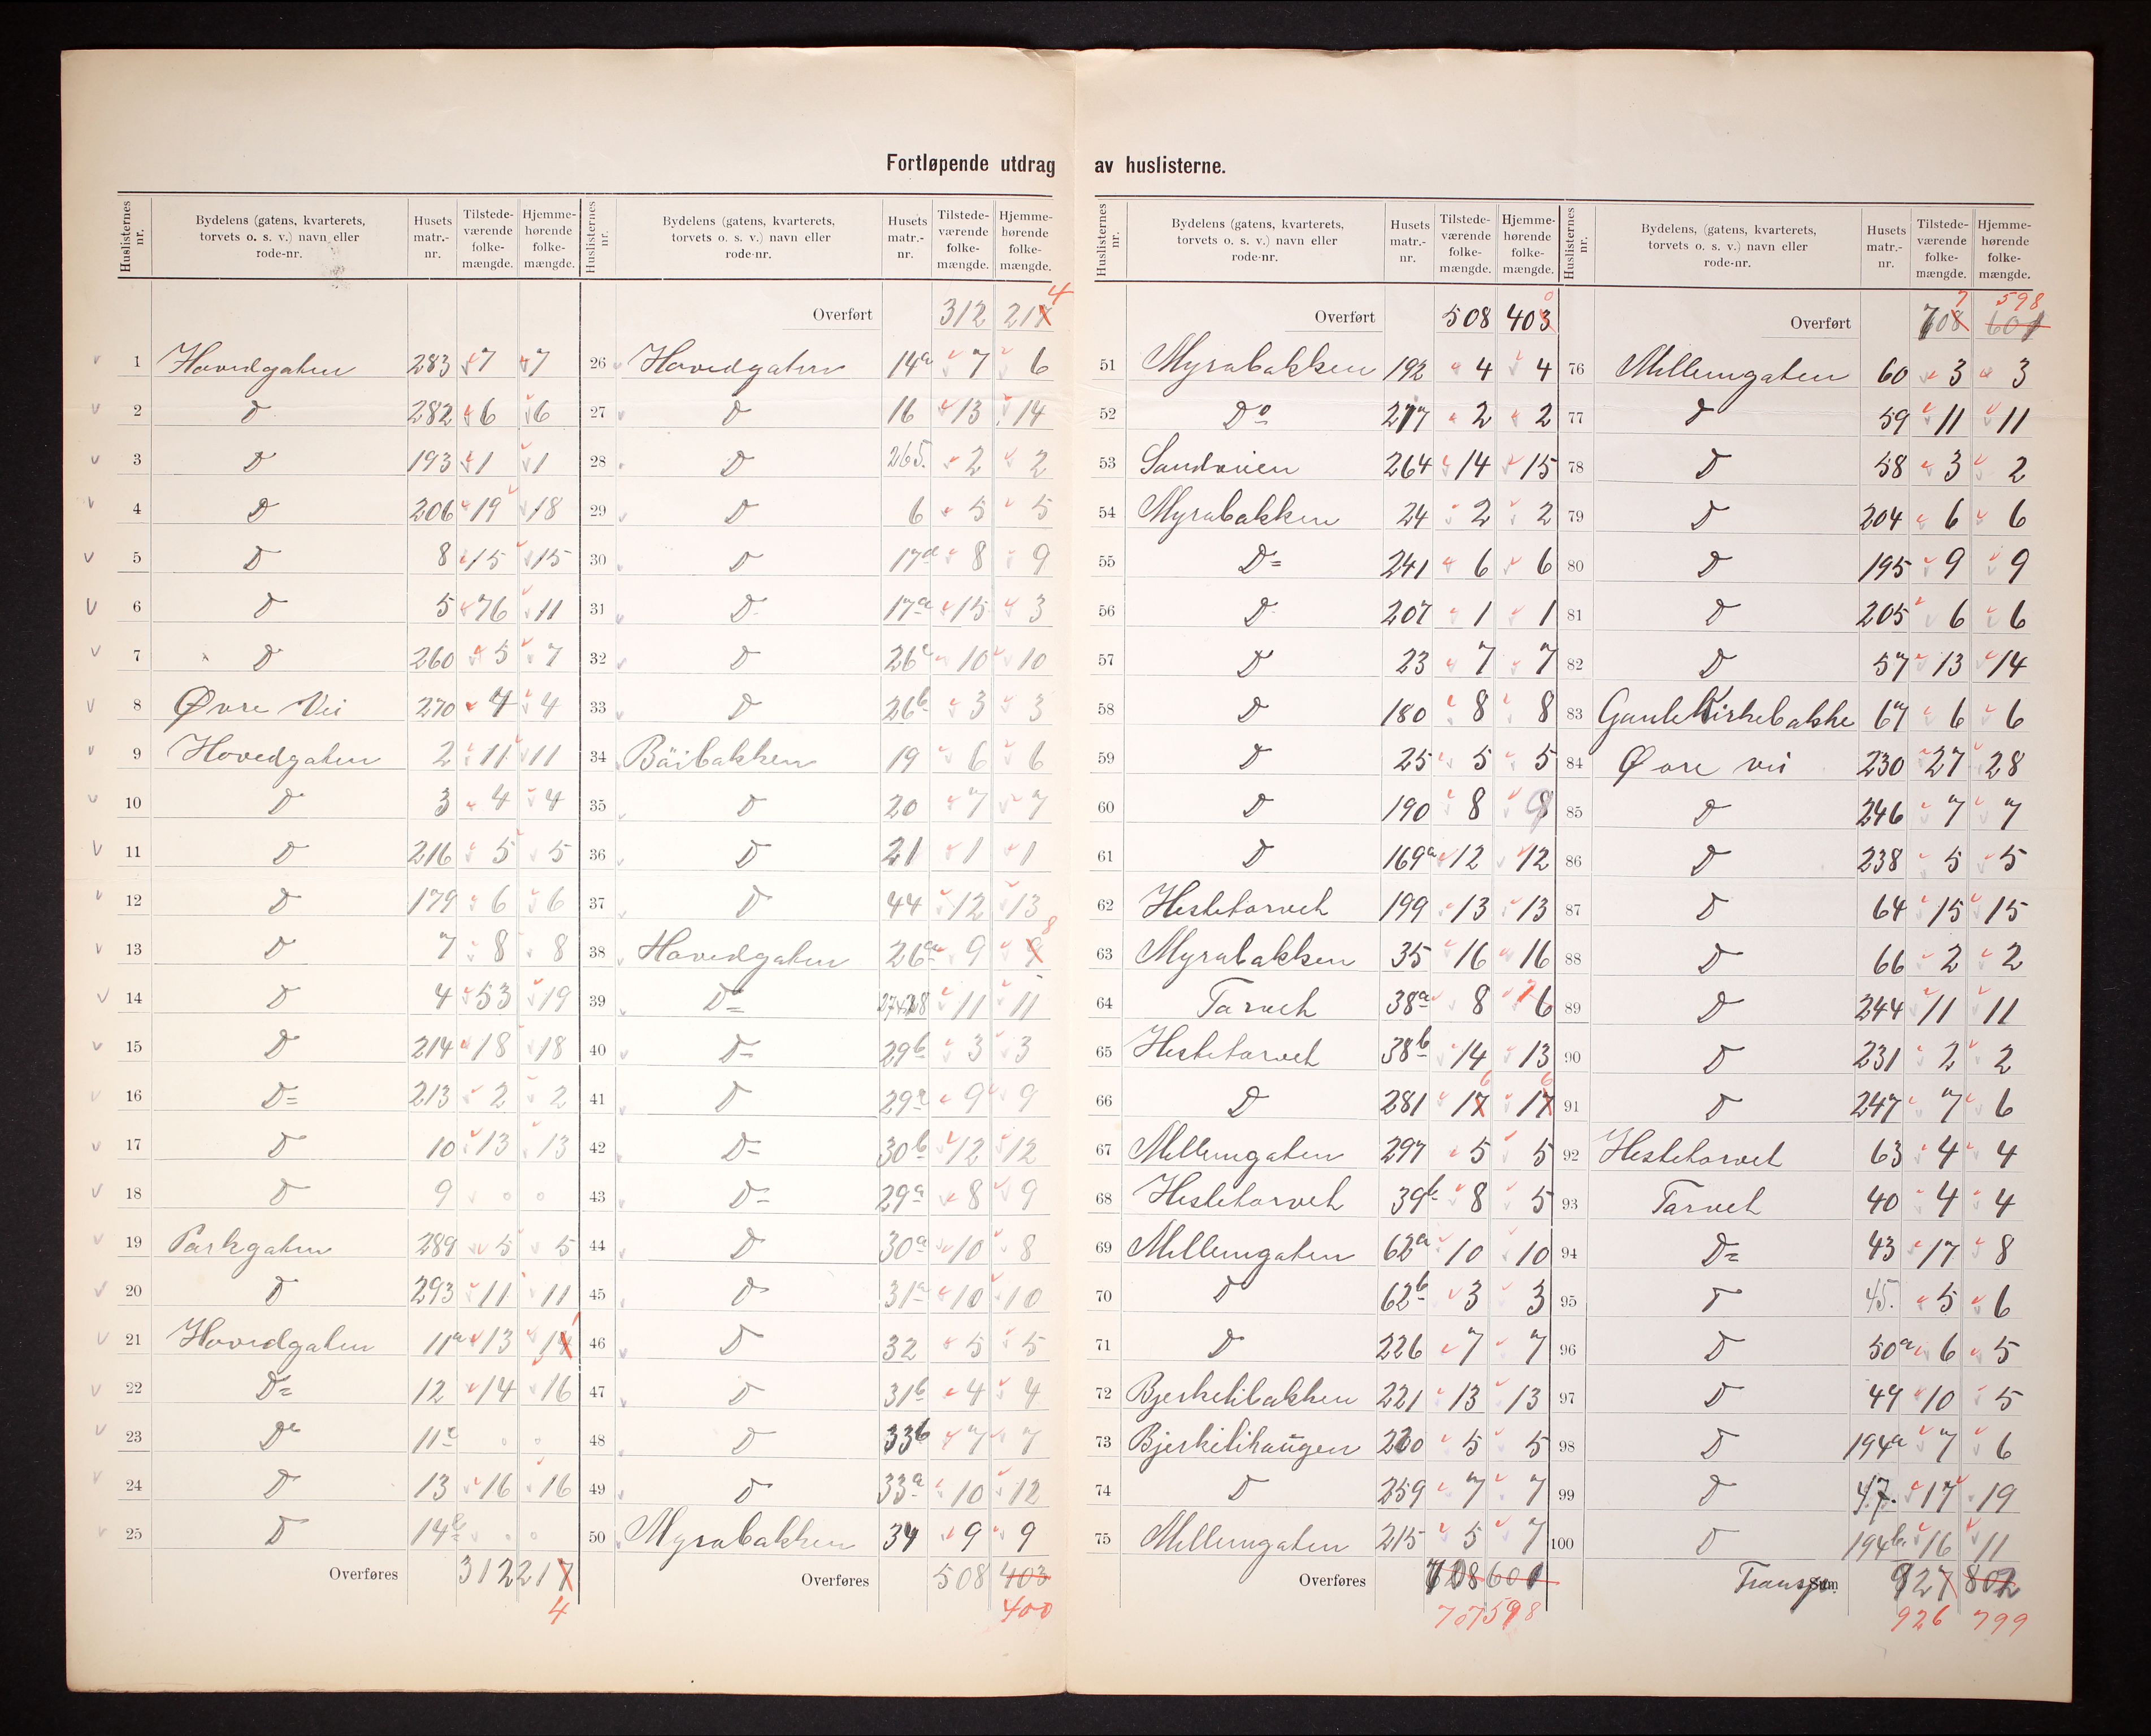 Fortløpende utdrag av huslisterne.
Huslisternes nr. | Bydelens (gatens, kvarterets, torvets o. s. v.) navn eller rode-nr. | Husets matr.-nr. | Tilstede-værende folke-mængde. | Hjemme-hørende folke-mængde.
1 Hovedgaten 283 7 7
2 D 282 6 6
3 D 193 1 1
4 D 206 19 18
5 D 8 15 15
6 D 5 76 11
7 D 260 5 7
8 Øvre Vei 270 4 4
9 Hovedgaten 2 11 11
10 D 3 4 4
11 D 216 5 5
12 D 179 6 6
13 D 7 8 8
14 D 4 53 19
15 D 214 18 18
16 D= 213 2 2
17 D 10 13 13
18 D 9 0 0
19 Parkgaten 289 5 5
20 D 293 11 11
21 Hovedgaten 11a 13 14 1
22 D= 12 14 16
23 Do 11c 0 0
24 D 13 16 16
25 D 14b 0 0
Overføres 312 217 4
Huslisternes nr. | Bydelens (gatens, kvarterets, torvets o. s. v.) navn eller rode-nr. | Husets matr.-nr. | Tilstede-værende folke-mængde. | Hjemme-hørende folke-mængde.
Overført 312 217 4
26 Hovedgaten 14a 7 6
27 D 16 13 14
28 D 265. 2 2
29 D 6 5 5
30 D 17d 8 9
31 D 17a 15 3
32 D 26c 10 10
33 D 26b 3 3
34 Bäibakken 19 6 6
35 D 20 7 7
36 D 21 1 1
37 D 44 12 13
38 Hovedgaten 26a 9 9 8
39 D= 27&28 11 11
40 D= 29b 3 3
41 D 29c 9 9
42 D= 30b 12 12
43 D= 29a 8 9
44 D 30a 10 8
45 D 31a 10 10
46 D 32 5 5
47 D 31b 4 4
48 D 33b 7 7
49 D 33a 10 12
50 Myrabakken 34 9 9
Overføres 508 403
400
Huslisternes nr. | Bydelens (gatens, kvarterets, torvets o. s. v.) navn eller rode-nr. | Husets matr.-nr. | Tilstede-værende folke-mængde. | Hjemme-hørende folke-mængde.
Overført 508 403 0
51 Myrabakken 192 4 4
52 Do 277 2 2
53 Sandveien 264 14 15
54 Myrabakken 24 2 2
55 D= 241 6 6
56 D 207 1 1
57 D 23 7 7
58 D 180 8 8
59 D 25 5 5
60 D 190 8 8
61 D 169a 12 12
62 Hestetorvet 199 13 13
63 Myrabakken 35 16 16
64 Torvet 38a 8 6
65 Hestetorvet 38b 14 13
66 D 281 17 6 17 6
67 Mellemgaten 297 5 5
68 Hestetorvet 39b 8 5
69 Mellemgaten 62a 10 10
70 D 62b 3 3
71 D 226 7 7
72 Bjerkelibakken 221 13 13
73 Bjerkelihaugen 220 5 5
74 D 259 7 7
75 Mellemgaten 215 5 7
Overføres 708 601
707 598
Huslisternes nr. | Bydelens, (gatens, kvarterets, torvets o. s. v.) navn eller rode-nr. | Husets matr.-nr. | Tilstede-værende folke-mængde. | Hjemme-hørende folke-mængde.
Overført 708 7 601 598
76 Mellemgaten 60 3 3
77 D 59 11 11
78 D 58 3 2
79 D 204 6 6
80 D 195 9 9
81 D 205 6 6
82 D 57 13 14
83 Gamle Kirkebakke 67 6 6
84 Øvre vei 230 27 28
85 D 246 7 7
86 D 238 5 5
87 D 64 15 15
88 D 66 2 2
89 D 244 11 11
90 D 231 2 2
91 D 247 7 6
92 Hestetorvet 63 4 4
93 Torvet 40 4 4
94 D= 43 17 8
95 D 45. 5 6
96 D 50a 6 5
97 D 49 10 5
98 D 194a 7 6
99 D 47. 17 19
100 D 194b 16 11
Transp. Sum 927 802
926 799